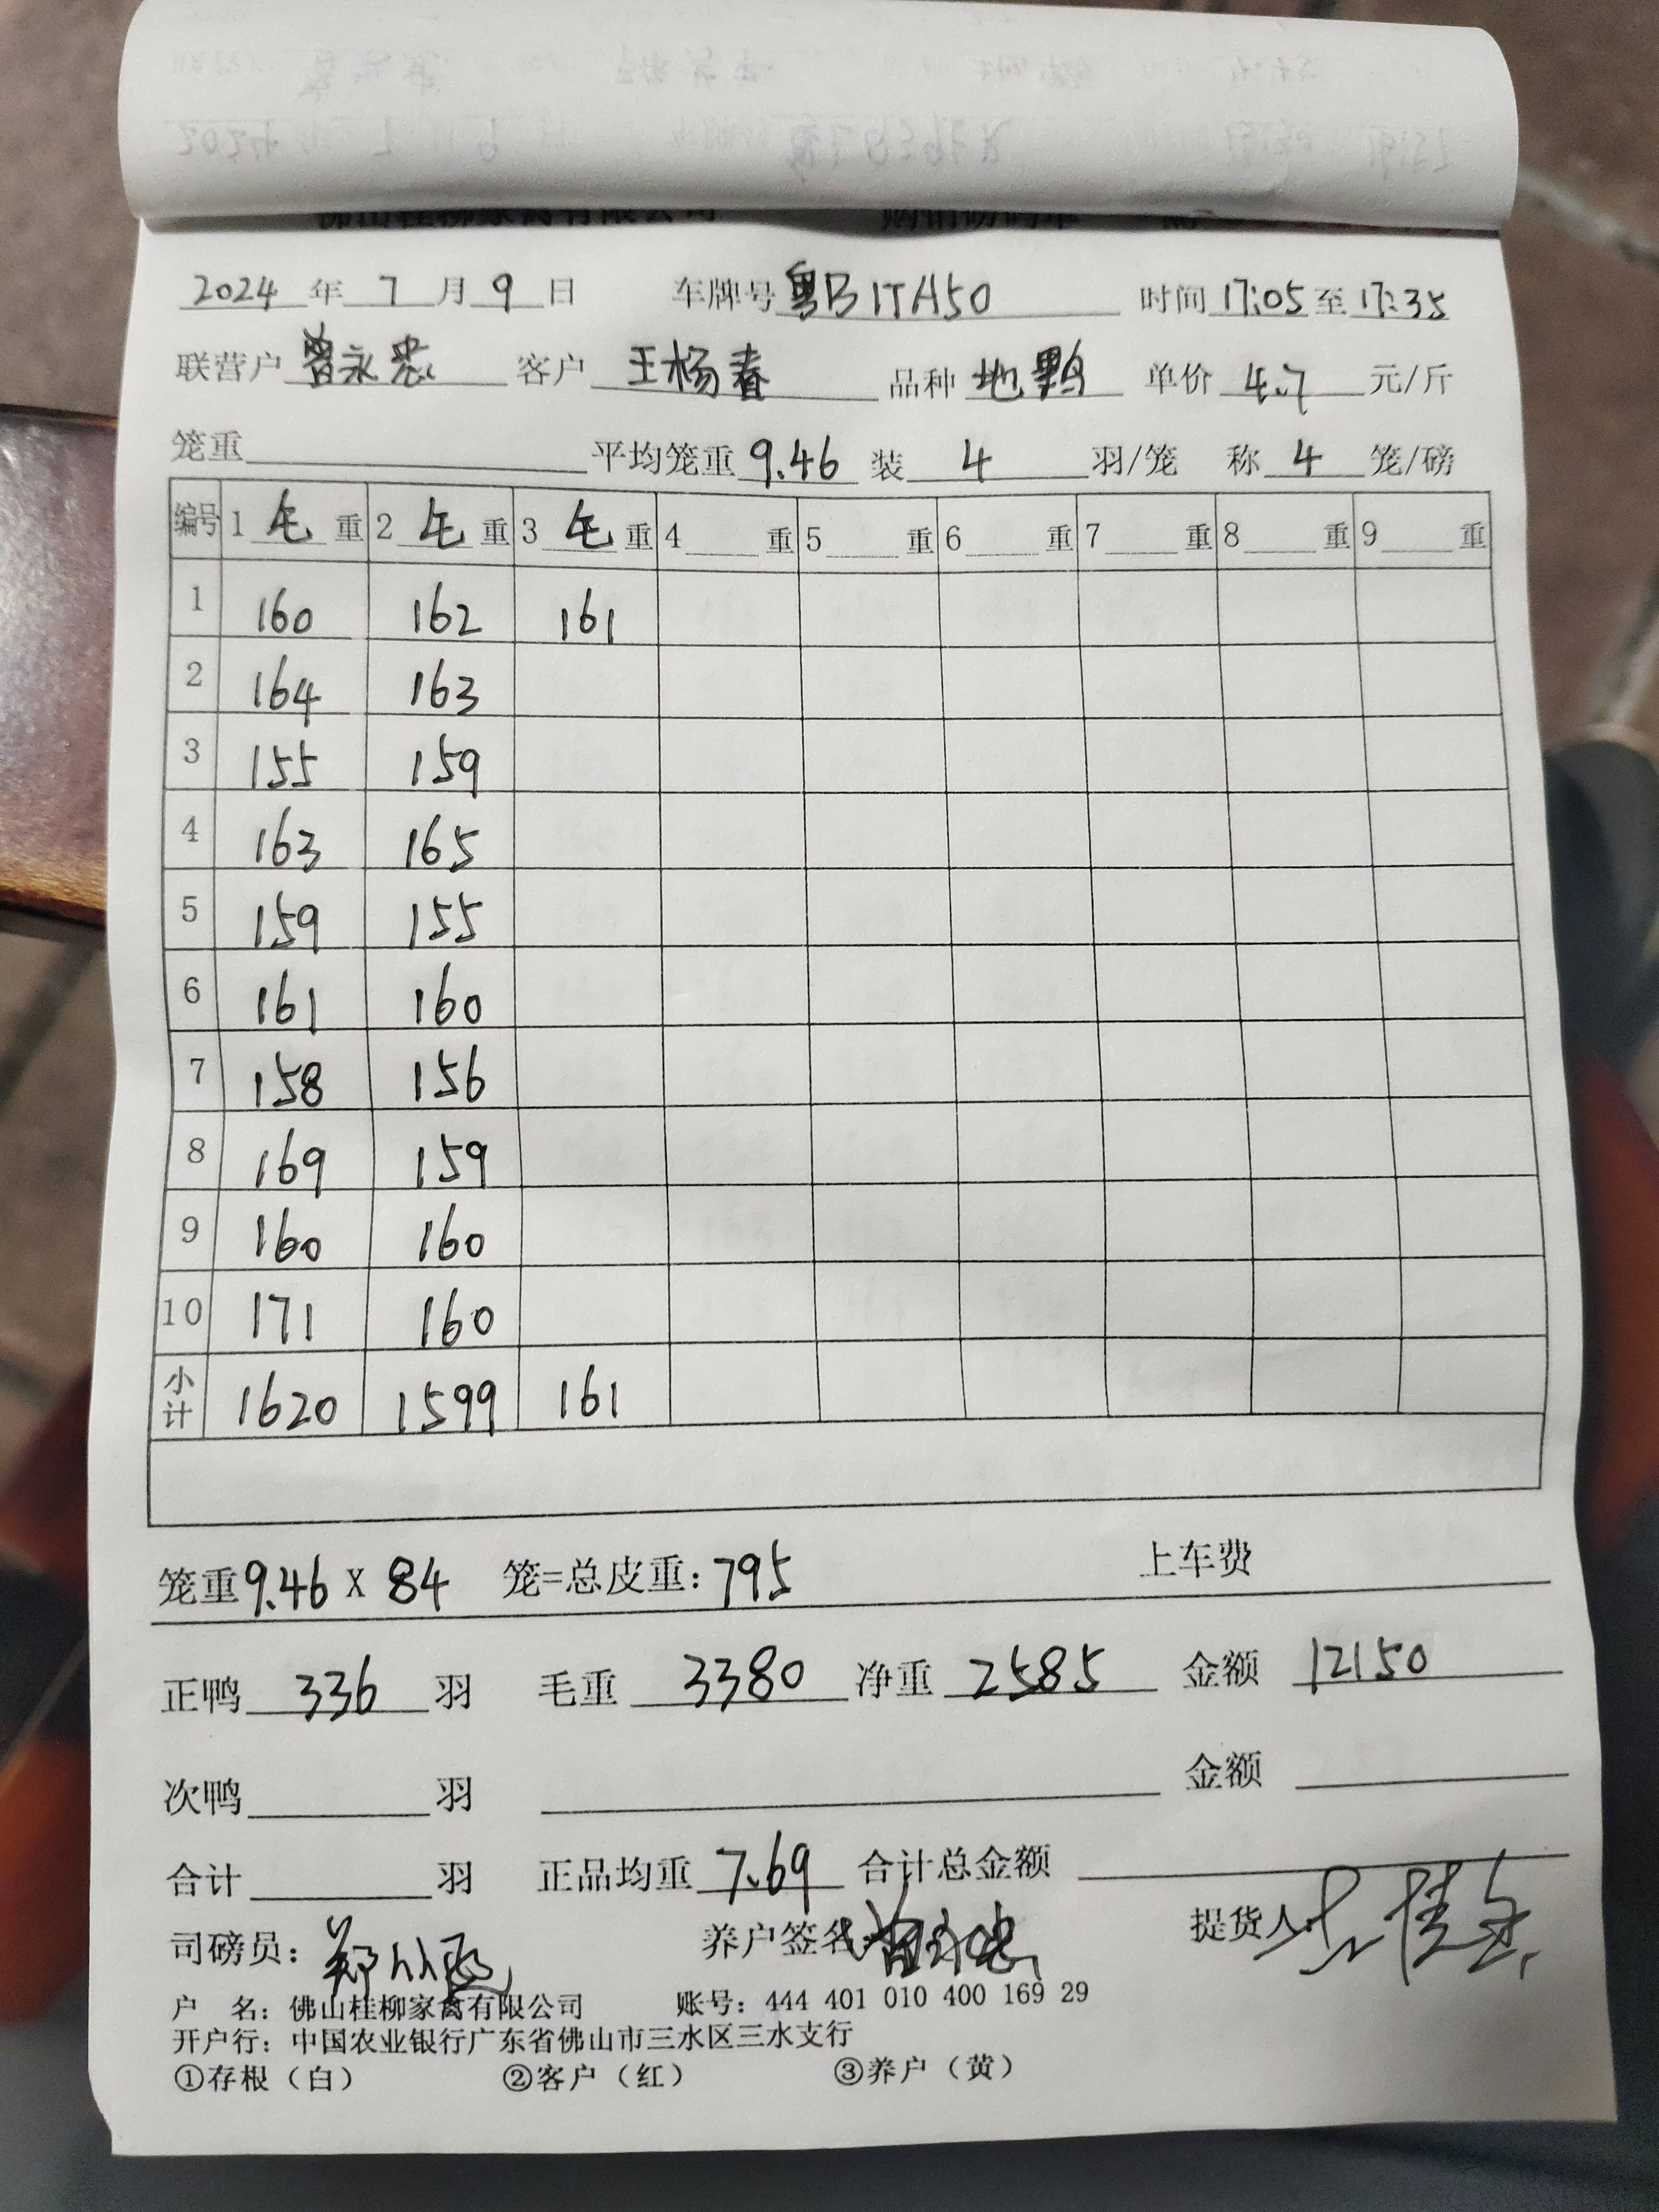 佛山桂柳家禽有限公司 购销磅码单
2024 年 7 月 9 日 车牌号 粤B1TA50 时间 17:05 至 17:35
联营户 曾永忠 客户 王杨春 品种 地鸭 单价 4.7 元/斤
笼重 平均笼重 9.46 装 4 羽/笼 称 4 笼/磅
编号 1 毛 重 2 毛 重 3 毛 重 4 重 5 重 6 重 7 重 8 重 9 重
1 160 162 161
2 164 163
3 155 159
4 163 165
5 159 155
6 161 160
7 158 156
8 169 159
9 160 160
10 171 160
小计 1620 1599 161
笼重 9.46 X 84 笼=总皮重: 795 上车费
正鸭 336 羽 毛重 3380 净重 2585 金额 12150
次鸭 羽 金额
合计 羽 正品均重 7.69 合计总金额
司磅员: 郑 养户签名 曾永忠 提货人
户 名: 佛山桂柳家禽有限公司 账号: 444 401 010 400 169 29
开户行: 中国农业银行广东省佛山市三水区三水支行
①存根（白） ②客户（红） ③养户（黄）